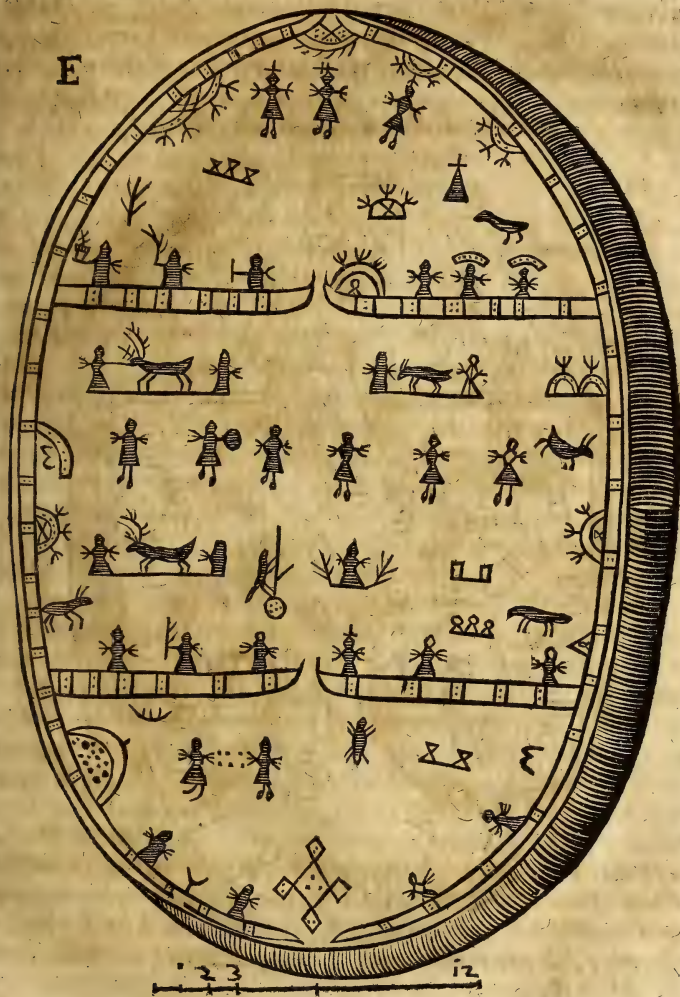 E
1 2 3 12